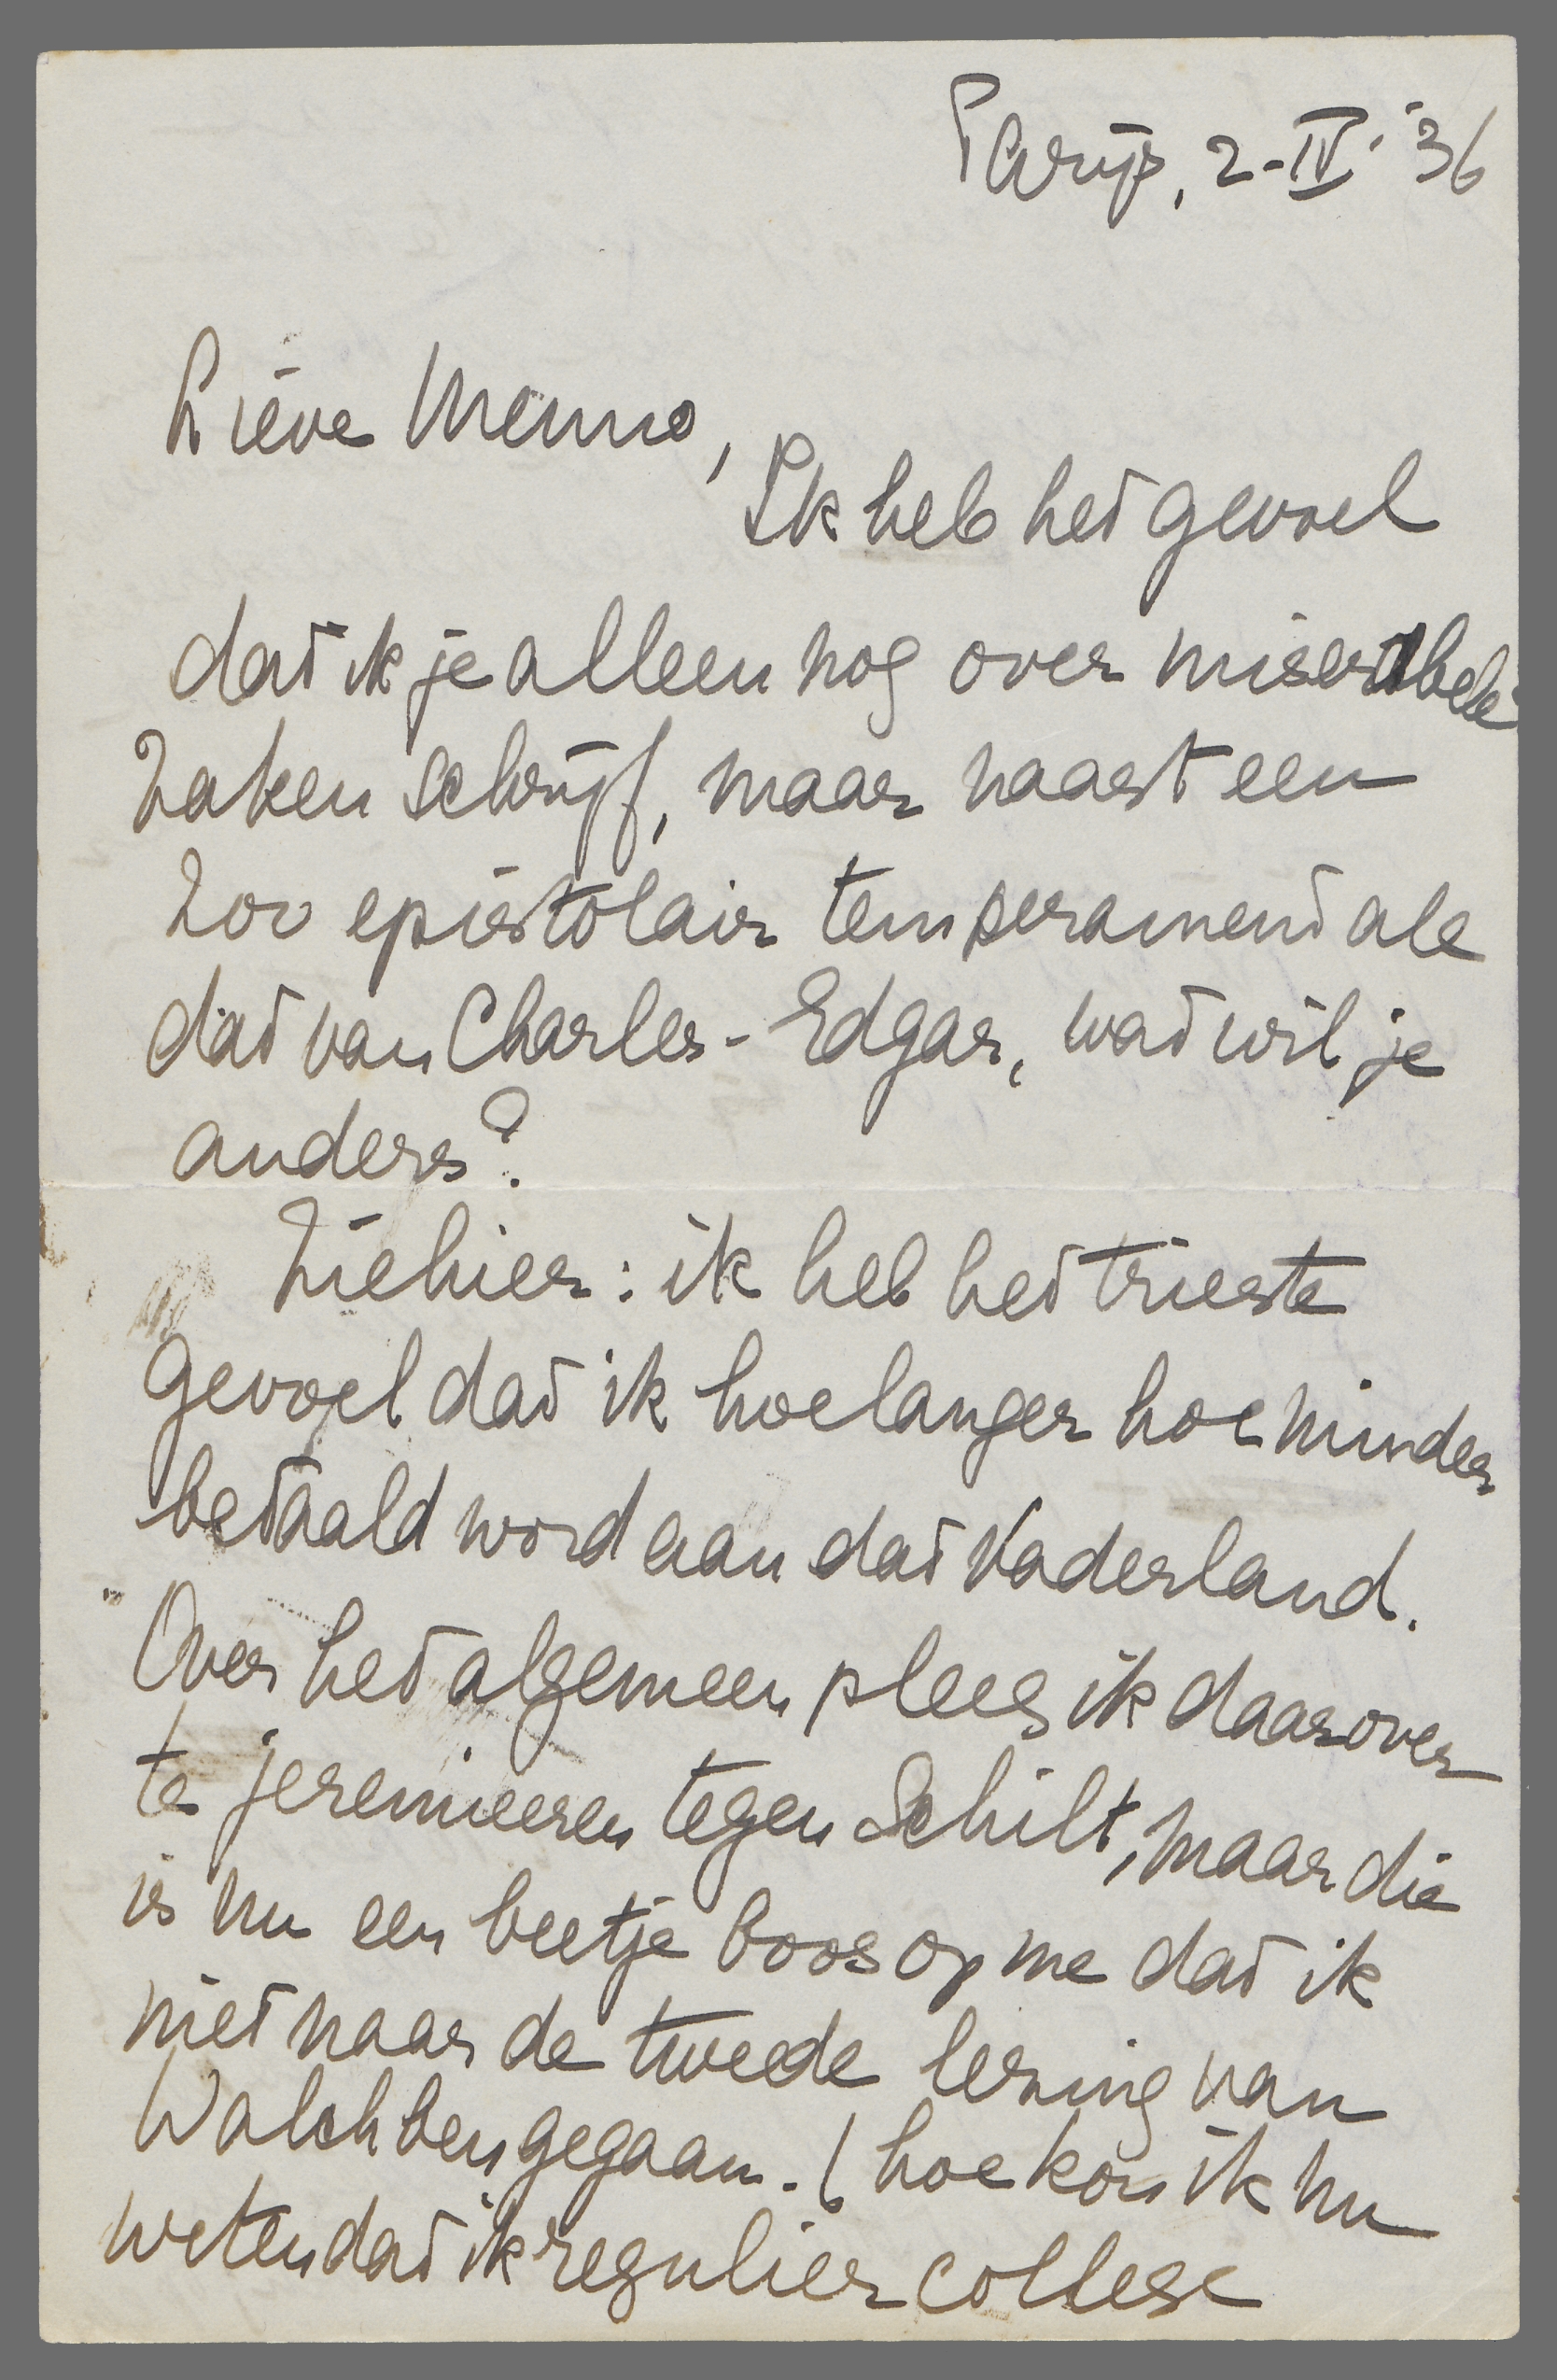 Parijs, 2-IV-'36
Lieve Menno,
Ik heb het gevoel
dat ik je alleen nog over miserabele
zaken schrijf, maar naast een
zoo epistolair temperament als
dat van Charles-Edgar, wat wil je
anders?
Ziehier: ik heb het trieste
gevoel dat ik hoe langer hoe minder
betaald word aan dat Vaderland.
Over het algemeen pleeg ik daarover
te jeremieeren tegen Schilt, maar die
is nu een beetje boos op me dat ik
niet naar de tweede lezing van
Walch ben gegaan. (hoe kon ik nu
weten dat ik regulier college